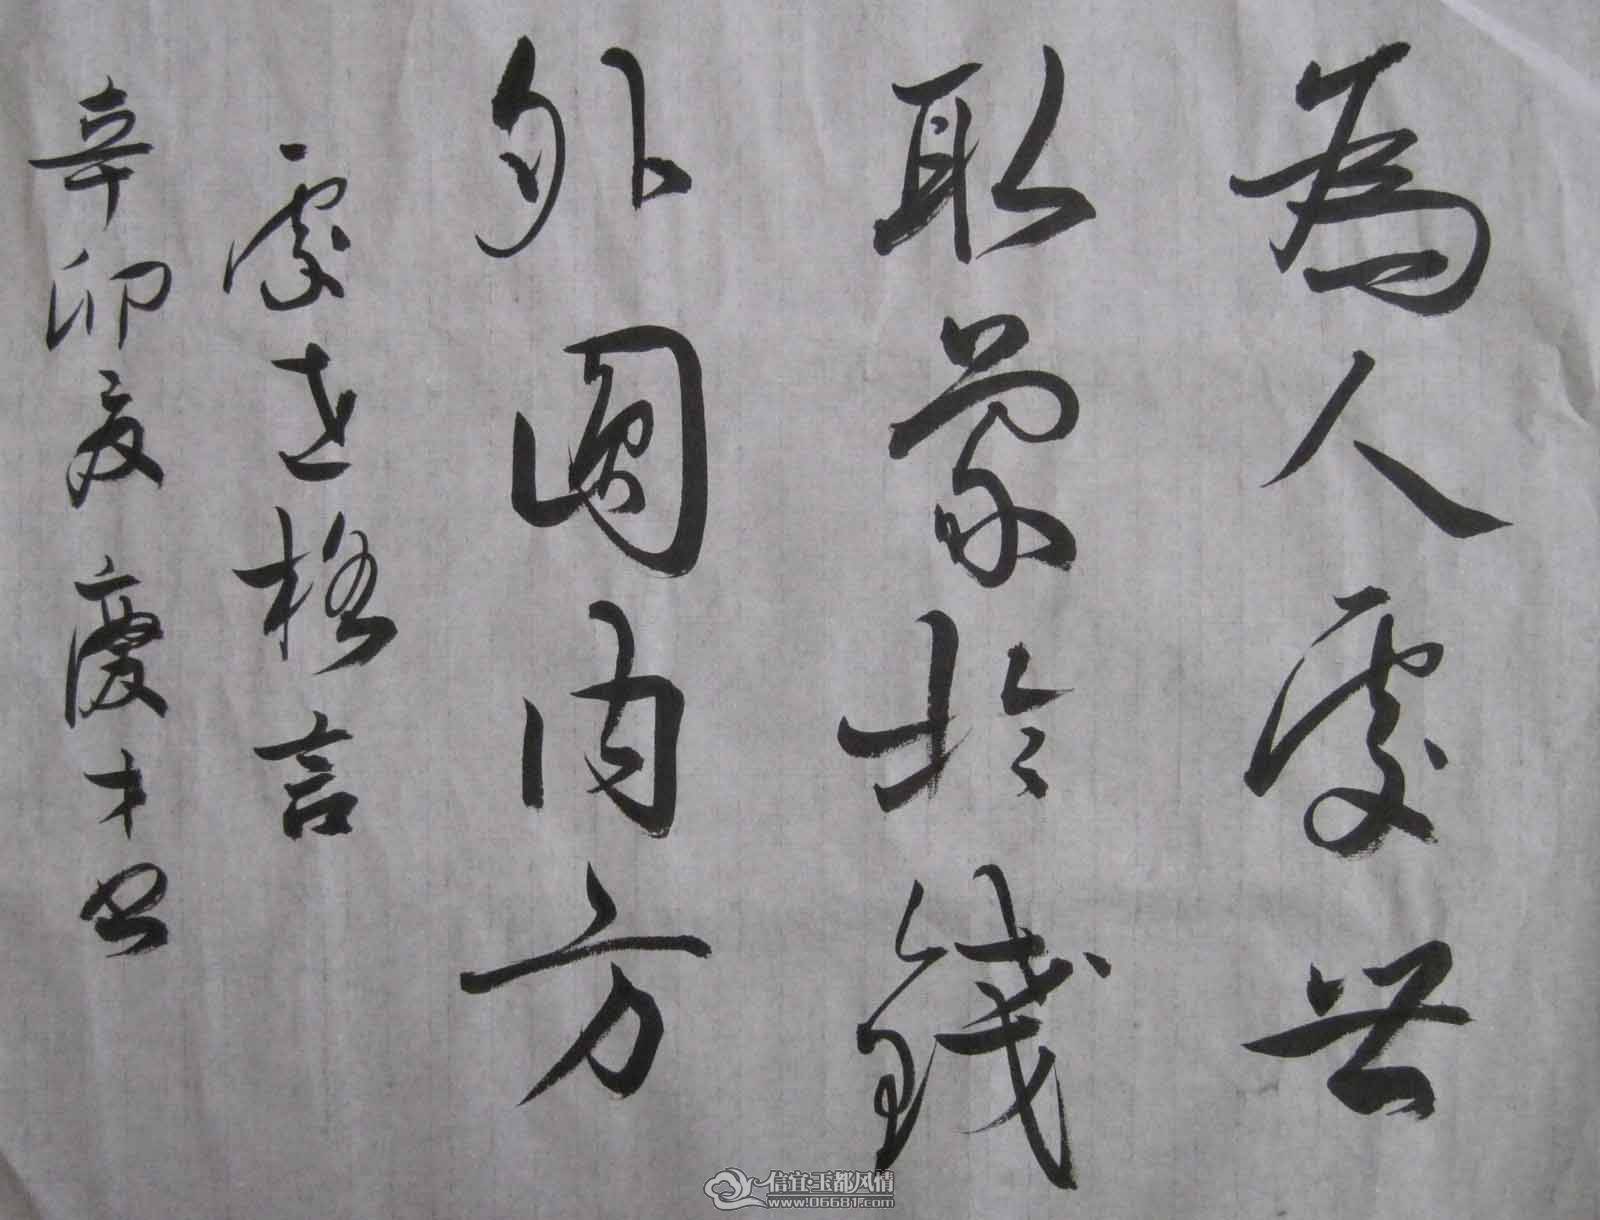 為人處世
取象於錢
外圓内方
處世格言
辛卯夏慶才书
信宜·玉都风情
www.06681.com